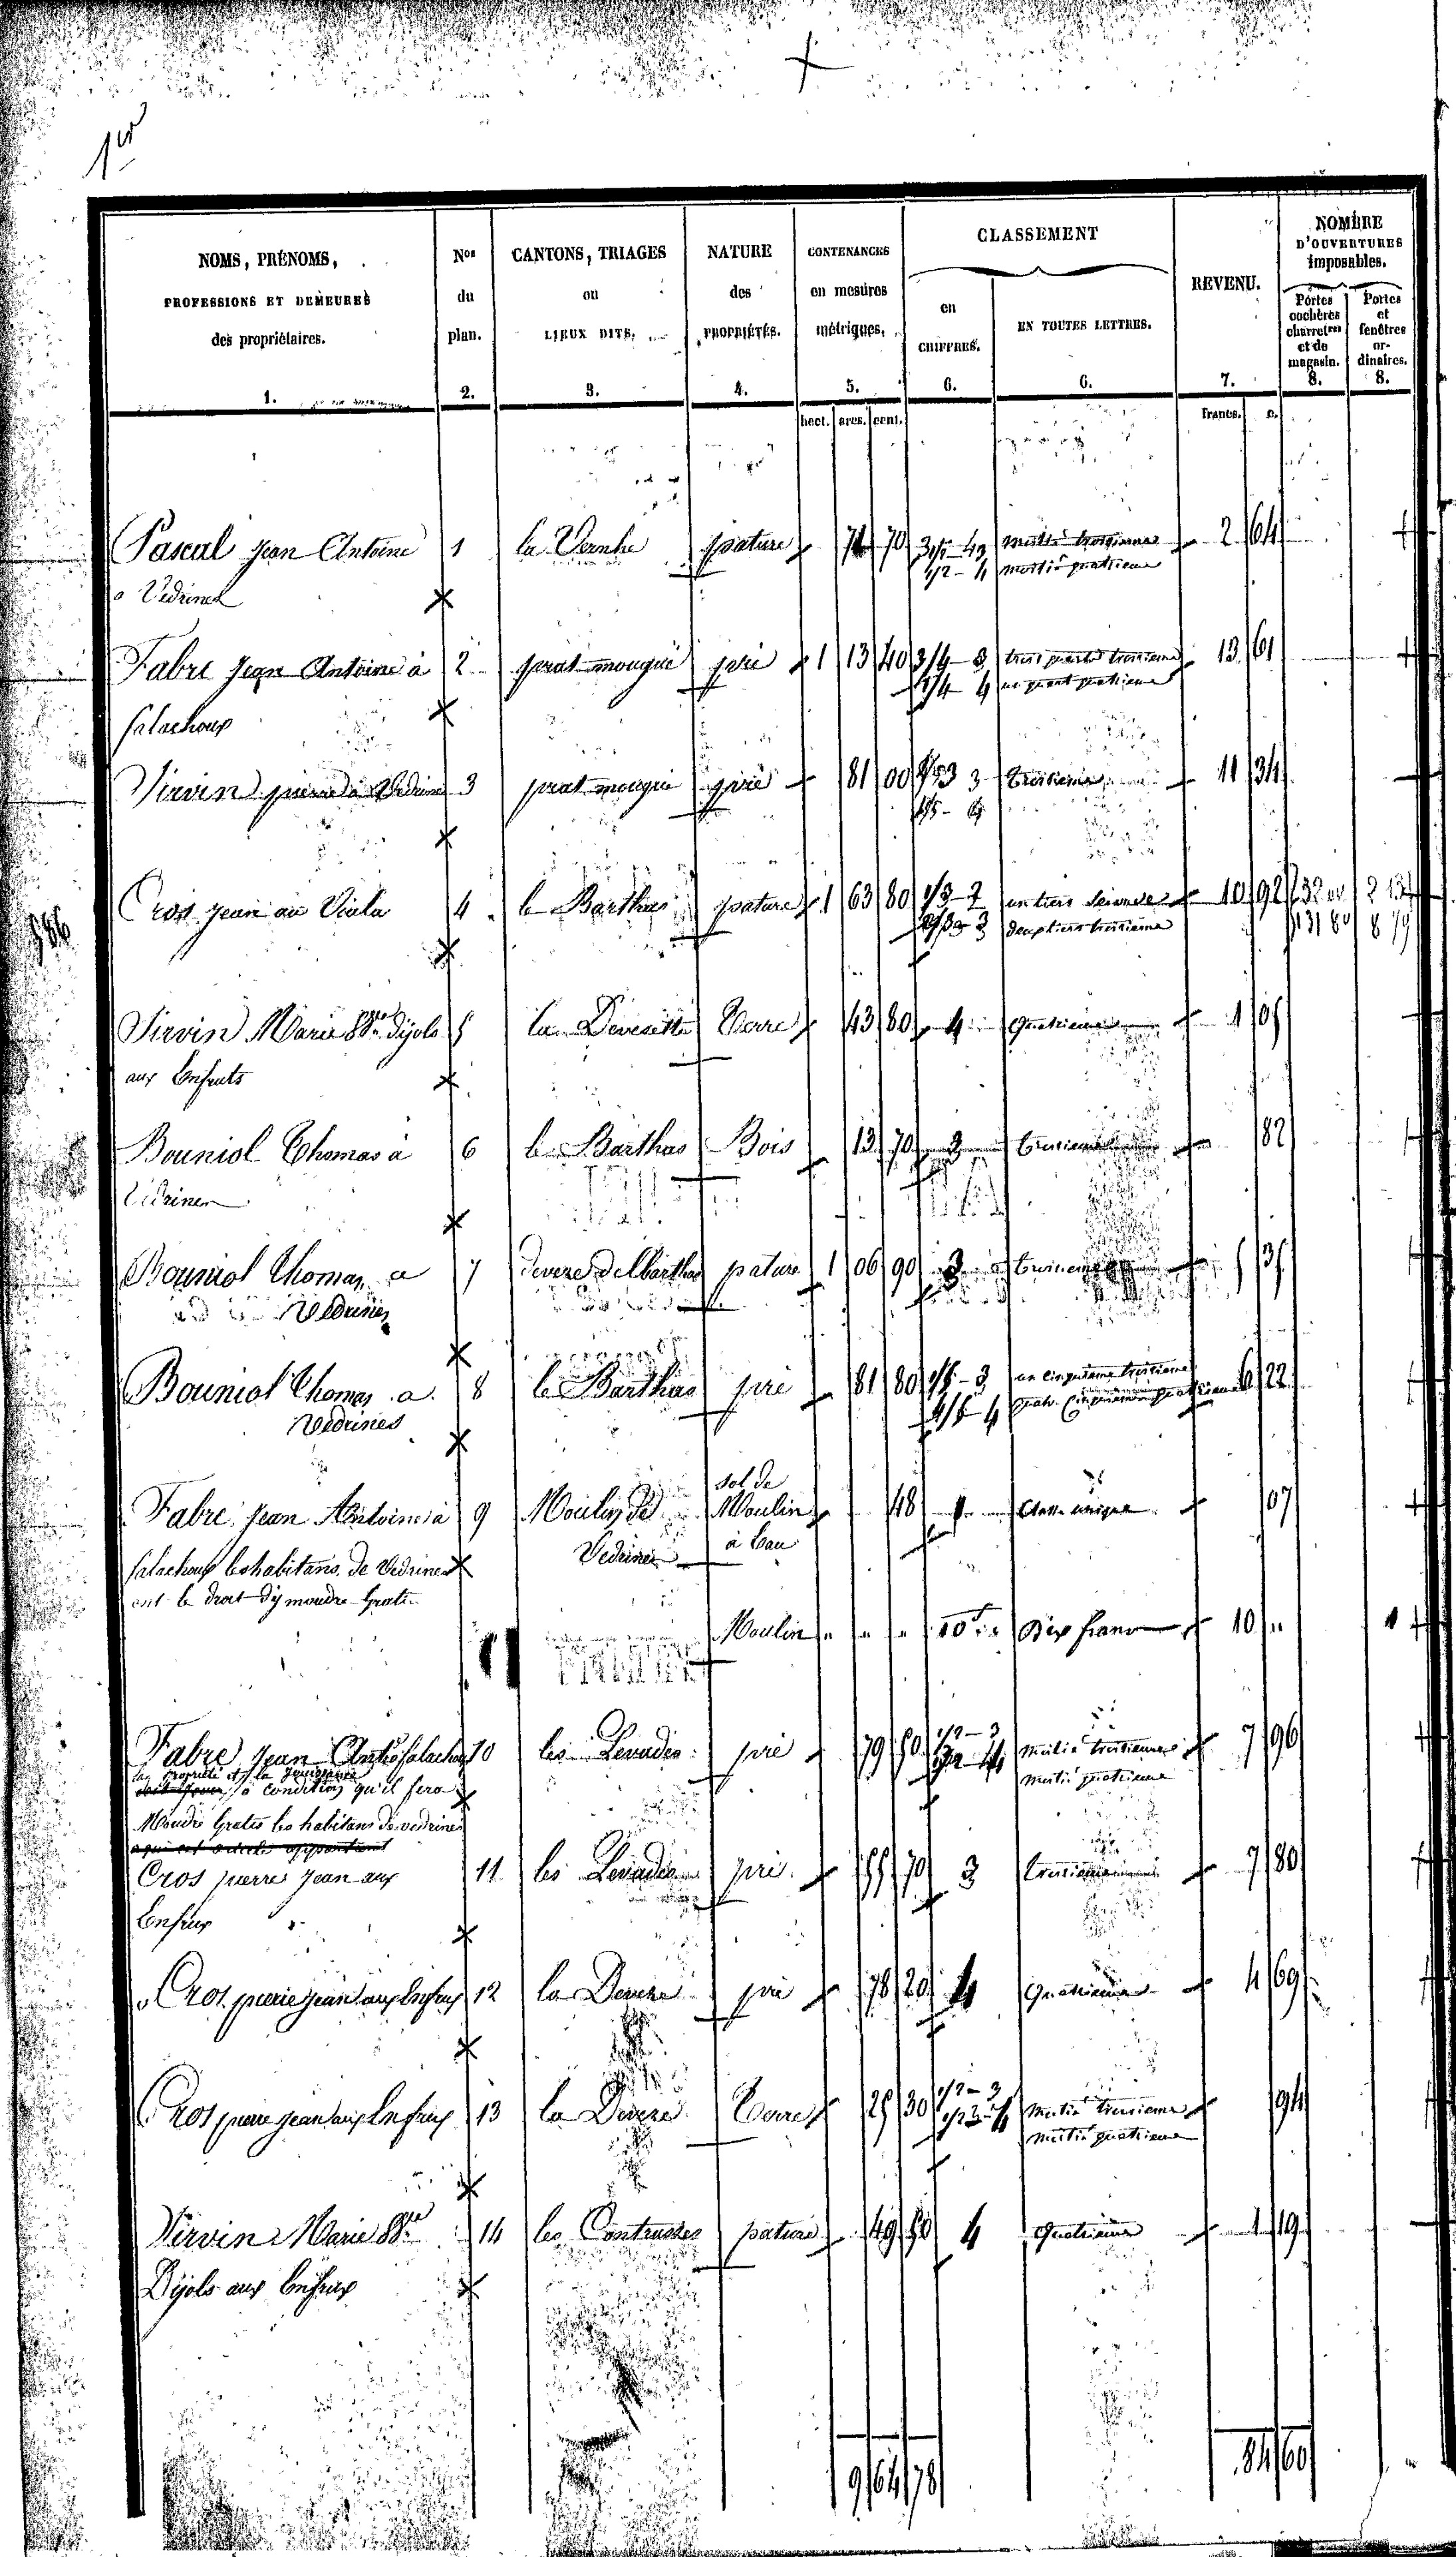 1er
NOMS, PRÉNOMS, PROFESSIONS ET DEMEURES des propriétaires. 1.
Nos du plan. 2.
CANTONS, TRIAGES ou LIEUX DITS. 3.
NATURE des PROPRIÉTÉS. 4.
CONTENANCES en mesures métriques. 5.
CLASSEMENT
en CHIFFRES. 6.
EN TOUTES LETTRES. 6.
REVENU. 7.
NOMBRE D'OUVERTURES imposables.
Portes cochères charretres et de magasin. 8.
Portes et fenêtres ordinaires. 8.
hect. ares. cent. francs. c.
Pascal Jean Antoine 1 la Vernhe pature 70 moitié troisieme 2 64
a Vedrines 1/2 - 4 moitié quatrieme
Fabre Jean Antoine à 2 prat mouguè pré 1 13 40 3/4 - 3 trois quarts troisieme 13 61
1/4 4 un quart quatrieme
falachoux
Virvin pierre à Vedrines 3 prat mouguè pré 81 00 3 troisieme 11 34
Cros Jean au Viala 4 le Barthas pature 1 63 80 1/3 - 2 un tiers seconde 10 92
2/3 3 deux tiers troisieme
Virvin Marie Dijols 5 la Devesette Terre 43 80 4 quatrieme 1 05
aux Enfruts
Bouniol Thomas à 6 le Barthas Bois 13 70 3 troisieme 82
Vedrines
Bouniol Thomas a 7 devese del Barthas pature 1 06 90 3 troisieme 5 35
Vedrines
Bouniol Thomas a 8 le Barthas pré 81 80 1/5 - 3 un cinquieme troisieme 6 22
Vedrines 4/5 4 quatre cinquiemes quatrieme
sol de
Fabre Jean Antoine à 9 Moulin de Moulin 48 1 Classe unique 07
Vedrines à Eau
falachoux les habitans de Vedrines
ont le droit d'y moudre Gratis
Moulin " " " 10f " Dix francs 10 " 1
Fabre Jean Ant. falachoux 10 les Levades pré 79 50 1/2 - 3 moitié troisieme 7 96
1/2 4 moitié quatrieme
la propriété et la jouissance
à condition qu'il fera
Moudre Gratis les habitans de vedrines
Cros pierre Jean aux 11 les Levades pré 55 70 3 troisieme 7 80
Enfrux
Cros pierre jean aux Enfrux 12 la Devese pré 78 20 4 quatrieme 4 69
Cros pierre jean aux Enfrux 13 la Devese Terre 25 30 1/2 - 3 moitié troisieme 94
1/2 4 moitié quatrieme
Virvin Marie 14 les Contrastes pature 49 50 4 quatrieme 1 19
Dijols aux Enfrux
9 64 78 84 60